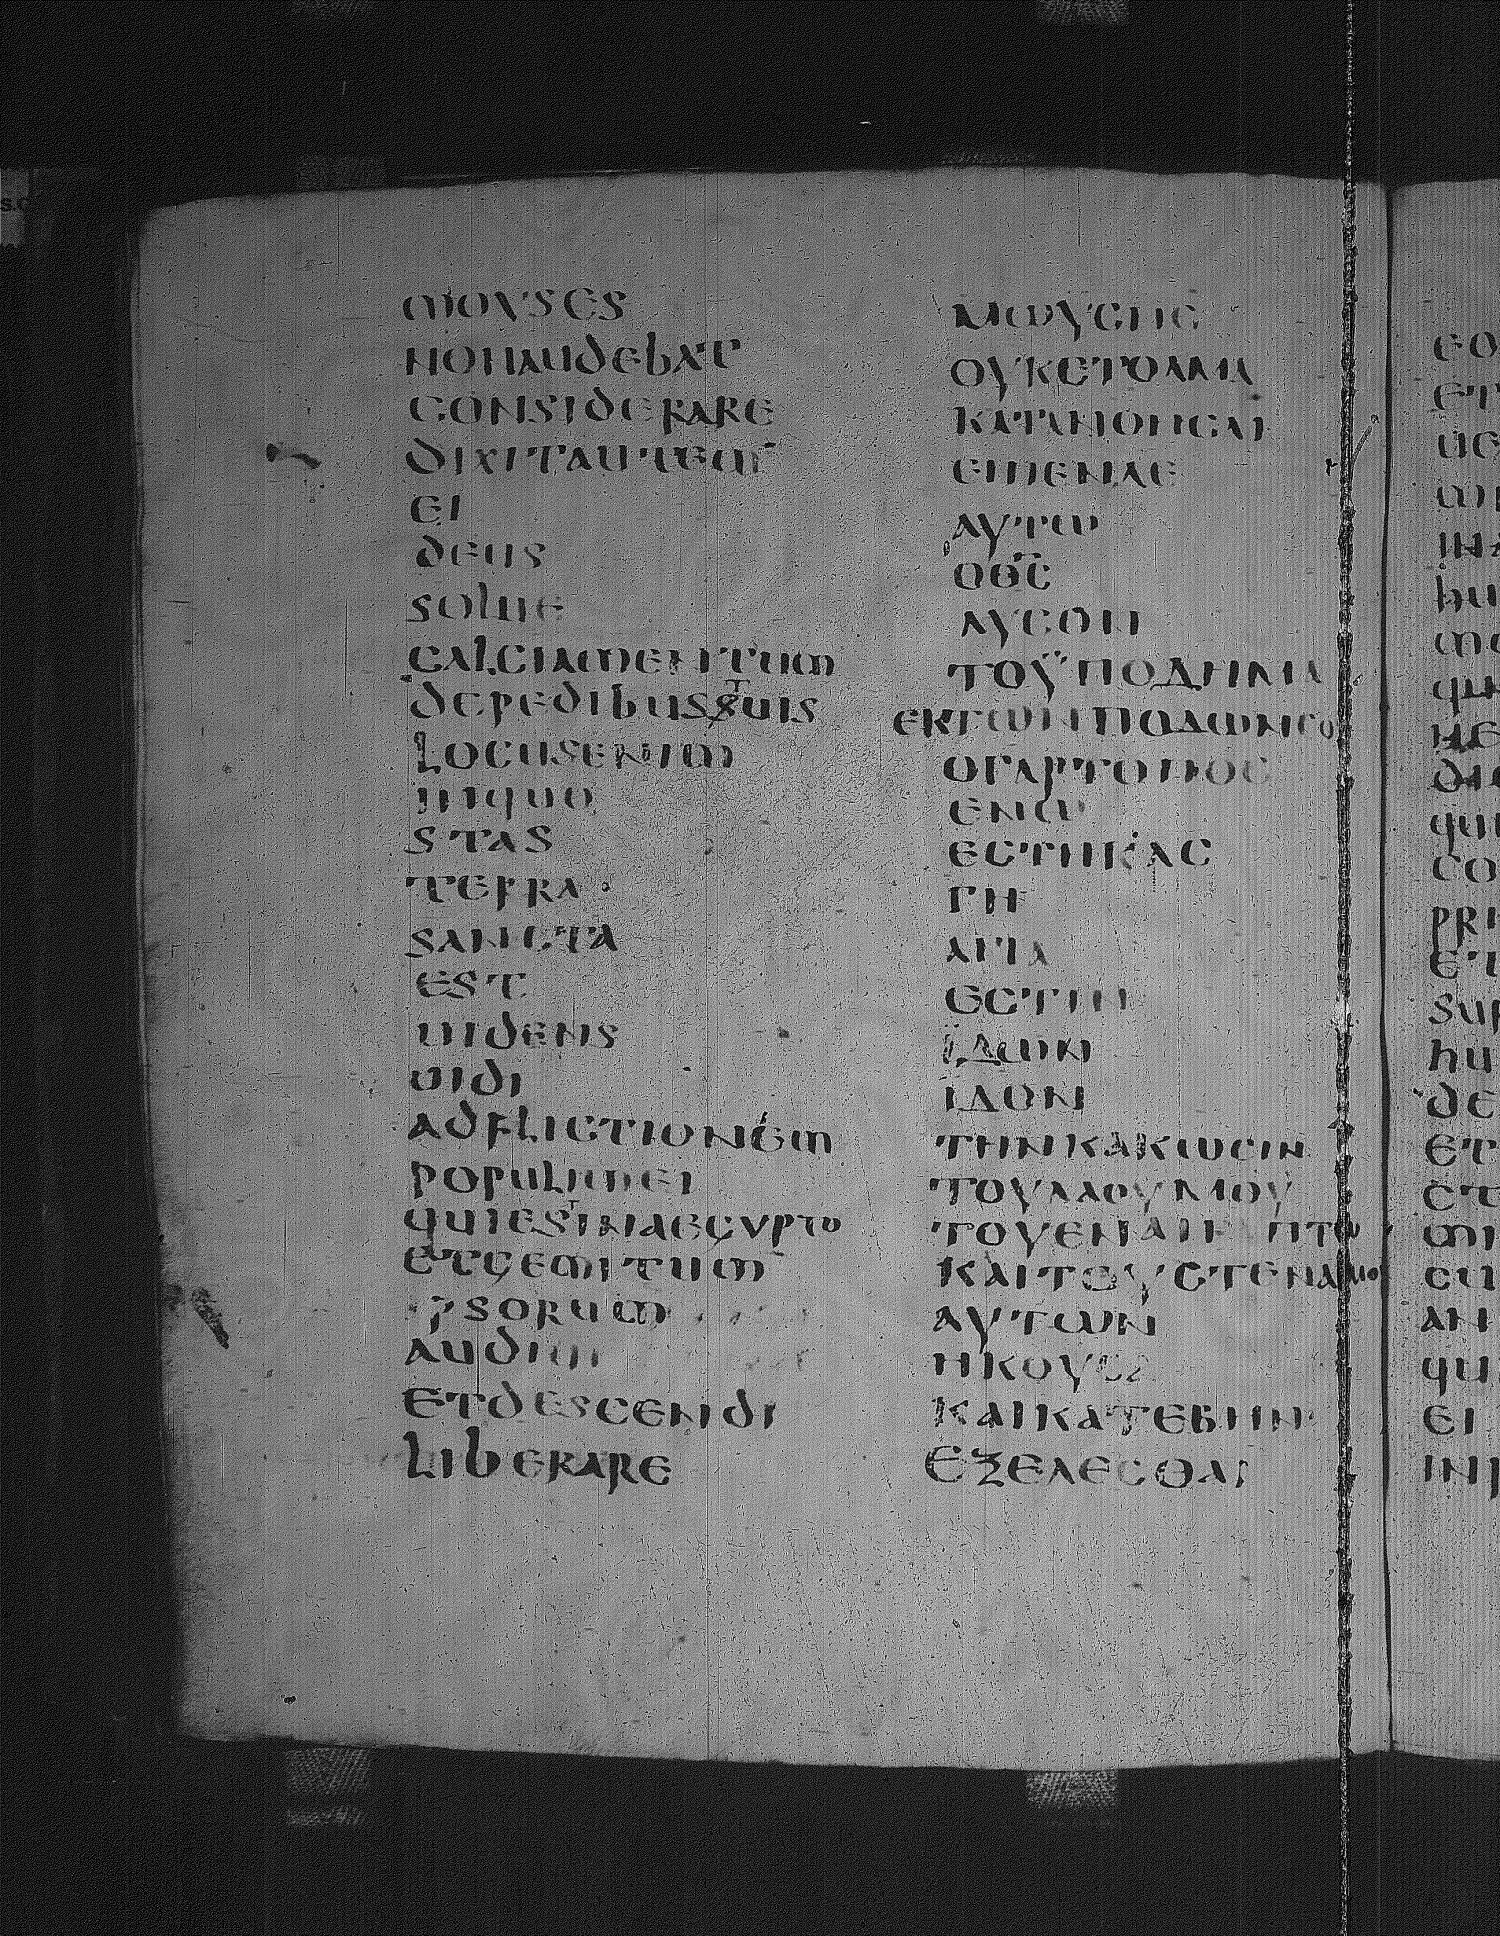 MOYSES
NONAUDEBAT
CONSIDERARE
DIXITAUTEM
EI
DEUS
SOLUE
CALCIAMENTUM
DEPEDIBUSTUIS
LOCUSENIM
INQUO
STAS
TERRA
SANCTA
EST
UIDENS
UIDI
ADFLICTIONEM
POPULIMEI
QUIESTINAEGYPTO
ETGEMITUM
IPSORUM
AUDIUI
ETDESCENDI
LIBERARE
ΜΩΥСΗС
ΟΥΚЄΤΟΛΜΑ
ΚΑΤΑΝΟΗСΑΙ
ЄΙΠЄΝΔЄ
ΑΥΤΩ
ΟΘ̅С̅
ΛΥСΟΝ
ΤΟΫΠΟΔΗΜΑ
ЄΚΤΩΝΠΟΔΩΝСΟΥ
ΟΓΑΡΤΟΠΟС
ЄΝΩ
ЄСΤΗΚΑС
ΓΗ
ΑΓΙΑ
ЄСΤΙΝ
ΪΔΩΝ
ΙΔΟΝ
ΤΗΝΚΑΚΩСΙΝ
ΤΟΥΛΑΟΥΜΟΥ
ΤΟΥЄΝΑΙΓΥΠΤΩ
ΚΑΙΤΟΥСΤЄΝΑΓΜΟΥ
ΑΥΤΩΝ
ΗΚΟΥСΑ
ΚΑΙΚΑΤЄΒΗΝ
ЄΞЄΛЄСΘΑΙ